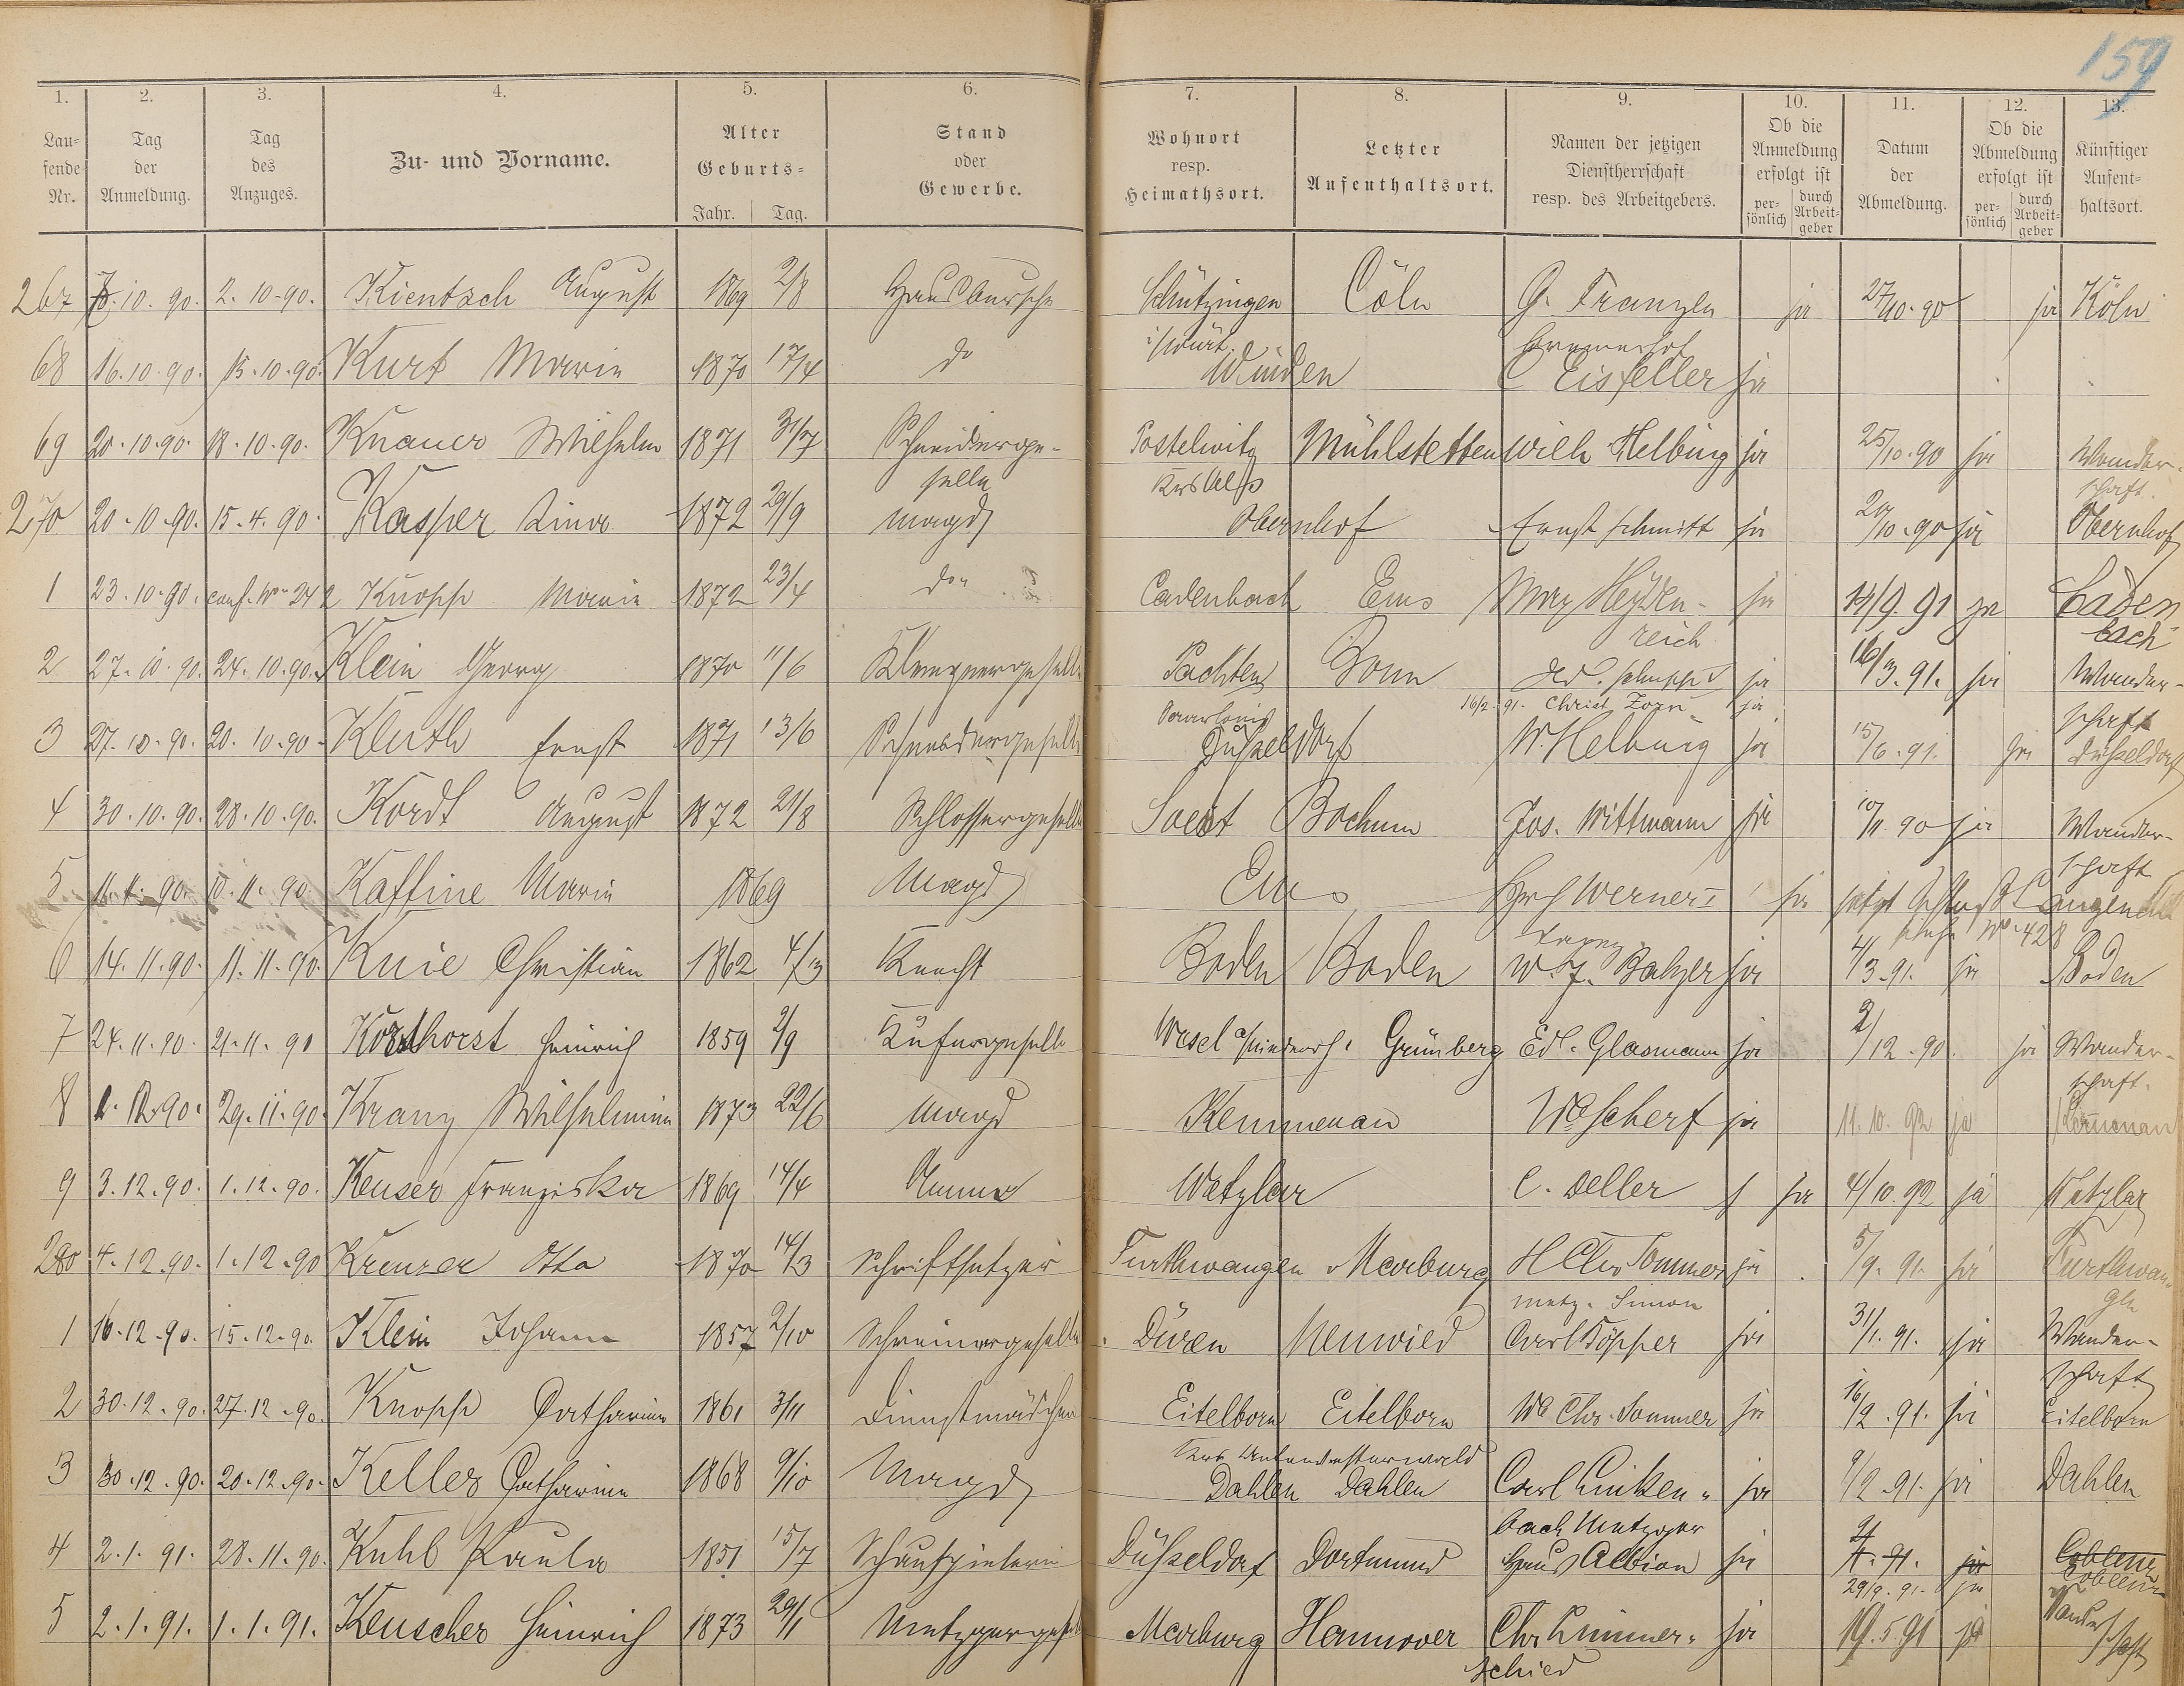 159
1. 2. 3. 4. 5. 6. 7. 8. 9. 10. 11. 12. 13.
Lau-fende Nr. Tag der Anmeldung. Tag des Anzuges. Zu- und Vorname. Alter Geburts- Jahr. Tag. Stand oder Gewerbe. Wohnort resp. Heimathsort. Letzter Aufenthaltsort. Namen der jetzigen Dienstherrschaft resp. des Arbeitgebers. Ob die Anmeldung erfolgt ist per-sönlich durch Arbeit-geber Datum der Abmeldung. Ob die Abmeldung erfolgt ist per-sönlich durch Arbeit-geber Künftiger Aufent-haltsort.
267 10. 90. 2. 10. 90. Kientsch August 1869 2/8 Hausbursche Schützingen Cöln G. Franzen ja 27/10. 90 ja Köln
i/Würt.
68 16. 10. 90. 15. 10. 90. Kurt Marie 1870 17/4 do Winden Eisfeller ja
69 20. 10. 90. 18. 10. 90. Knauer Wilhelm 1871 31/7 Schneiderge- Postelwitz Mühlstetten Wilh Helbing ja 25/10. 90 ja Wander-
selle schaft.
270 20. 10. 90. 15. 4. 90. Kasper Lina 1872 29/9 Magd Obernhof Ernst Schmitt ja 20/10. 90 ja Obernhof
1 23. 10. 90. conf. No 242 Knopp Marie 1872 23/4 do Cadenbach Ems Max Heyden- ja 14/9. 91 ja Caden
reich bach
2 27. 10. 90. 24. 10. 90. Klein Georg 1870 11/6 Klempnergeselle Pachten Bonn Ed. Schupp ja 16/3. 91. ja Wander-
Saarlouis 16/2. 91. Christ Zorn ja schaft
3 27. 10. 90. 20. 10. 90. Kluth Ernst 1871 13/6 Schneidergeselle Düsseldorf W. Helbing ja 15/6. 91. ja Düsseldorf
4 30. 10. 90. 28. 10. 90. Kordt August 1872 21/8 Schlossergeselle Soest Bochum Jos. Wittmann ja 10/11. 90 ja Wander-
schaft
5 11. 11. 90. 10. 11. 90. Kaffine Marie 1869 Magd Ems Werner ja jetzt
siehe No. 428
6 14. 11. 90. 11. 11. 90. Knie Christian 1862 4/3 Knecht Boden Boden W. J. Balzer ja 4/3. 91. ja Boden
7 24. 11. 90. 21. 11. 90 Korthorst Heinrich 1859 2/9 Küfergeselle Wesel Grünberg Ed. Glasmann ja 2/12. 90. ja Wander-
schaft.
8 1. 12. 90. 29. 11. 90. Kranz Wilhelmine 1873 22/6 Magd Kemmenau Wb Scherf ja 11. 10. 92 ja Kemenau
9 3. 12. 90. 1. 12. 90. Keuser Franziska 1869 14/4 Amme Wetzlar C. Deller ja 4/10. 92 ja Wetzlar
280 4. 12. 90. 1. 12. 90 Kreuzer Otto 1870 14/3 Schriftsetzer Furthwangen Marburg H Chr. Sommer ja 5/9. 91. ja Furthwan-
Metz. Simon gen
1 16. 12. 90. 15. 12. 90. Klein Johann 1857 2/10 Schreinergeselle Düren Neuwied Carl Töpper ja 31/1. 91. ja Wander-
schaft
2 30. 12. 90. 27. 12. 90. Knopp Catharine 1861 3/11 Dienstmädchen Eitelborn Eitelborn Wb Chr. Sommer ja 16/2. 91. ja Eitelborn
Krs Unterwesterwald
3 30. 12. 90. 20. 12. 90. Keller Catharine 1868 9/10 Magd Dahlen Dahlen Carl Linken- ja 9/2. 91. ja Dahlen
bach Metzger
4 2. 1. 91. 28. 11. 90. Kuhl Paula 1851 15/7 Schauspielerin Düsseldorf Dortmund Haus Albion ja ja Coblenz
29/9. 91. ja Coblenz
5 2. 1. 91. 1. 1. 91. Keuscher Heinrich 1873 29/1 Metzgergeselle Marburg Hannover Chr Zimmer- ja 19. 5. 91 ja Wanderschaft
schied